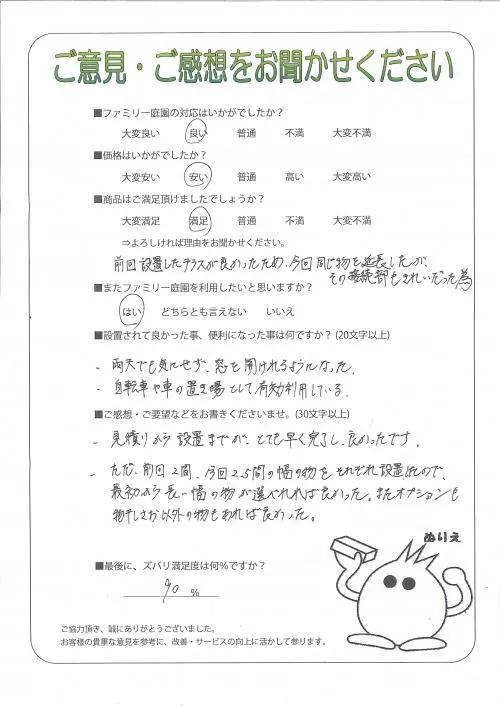 ご意見・ご感想をお聞かせください
■ファミリー庭園の対応はいかがでしたか？
大変良い 良い 普通 不満 大変不満
■価格はいかがでしたか？
大変安い 安い 普通 高い 大変高い
■商品はご満足頂けましたでしょうか？
大変満足 満足 普通 不満 大変不満
⇒よろしければ理由をお聞かせください。
前回設置したテラスが良かったため、今回同じ物を延長したが、
その接続部もきれいだった為
■またファミリー庭園を利用したいと思いますか？
はい どちらとも言えない いいえ
■設置されて良かった事、便利になった事は何ですか？(20文字以上)
- 雨天でも気にせず、窓を開けれるようになった。
- 自転車や車の置き場として有効利用している。
■ご感想・ご要望などをお書きくださいませ。(30文字以上)
- 見積りから設置までが、とても早く完了し、良かったです。
- ただ、前回2間、今回2.5間の幅の物をそれぞれ設置したので、
最初から長い幅の物が選べれれば良かった。またオプションも
物干しざお以外の物もあれば良かった。
ぬりえ
■最後に、ズバリ満足度は何%ですか？
90 %
ご協力頂き、誠にありがとうございました。
お客様の貴重な意見を参考に、改善・サービスの向上に活かして参ります。